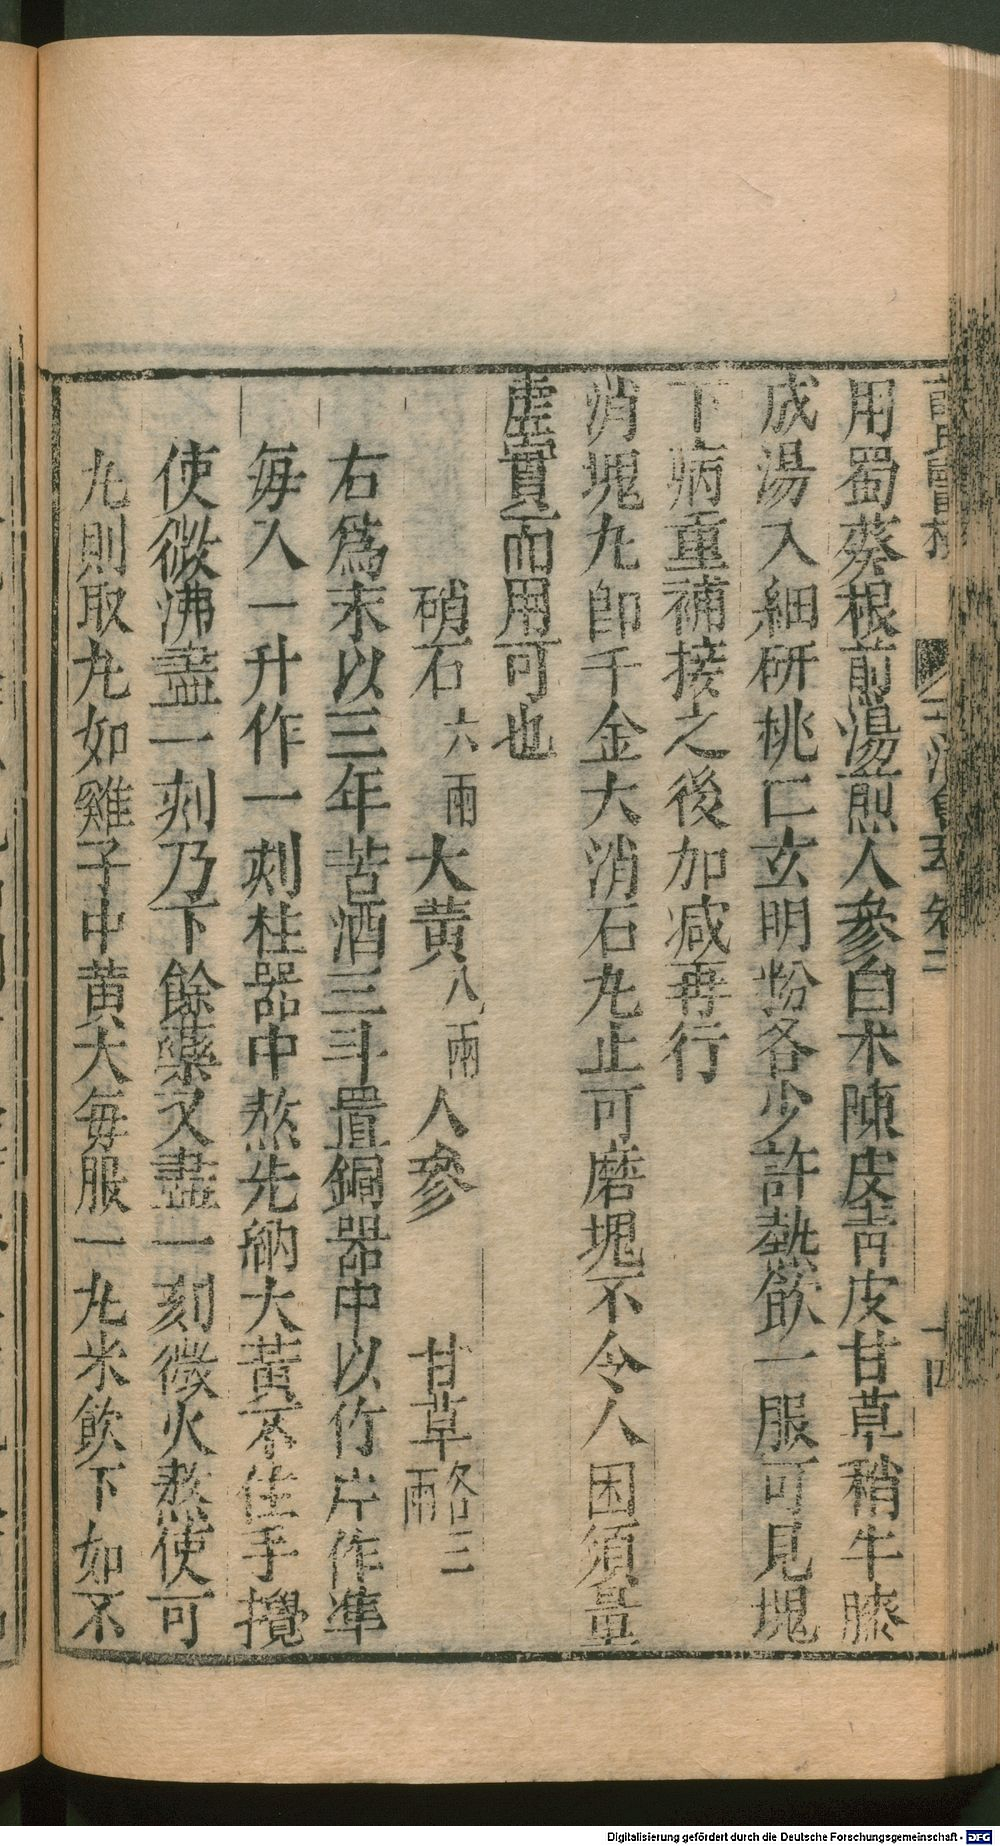 用蜀葵根煎湯煎人參白朮陳皮青皮甘草稍牛膝
成湯入細研桃仁玄明粉各少許熱飲一服可見塊
下病重補接之後加减再行
消塊丸卽千金大消石丸止可磨塊不令人困須量
虛實而用可也
硝石六兩大黃八兩人參甘草各三兩
右爲末以三年苦酒三斗置銅器中以竹片作準
每入一升作一刻柱器中熬先納大黃不住手攪
使微沸盡一刻乃下餘藥又盡一刻微火熬使可
丸則取丸如雞子中黃大每服一丸米飲下如不
Digitalisierung gefördert durch die Deutsche Forschungsgemeinschaft - DFG